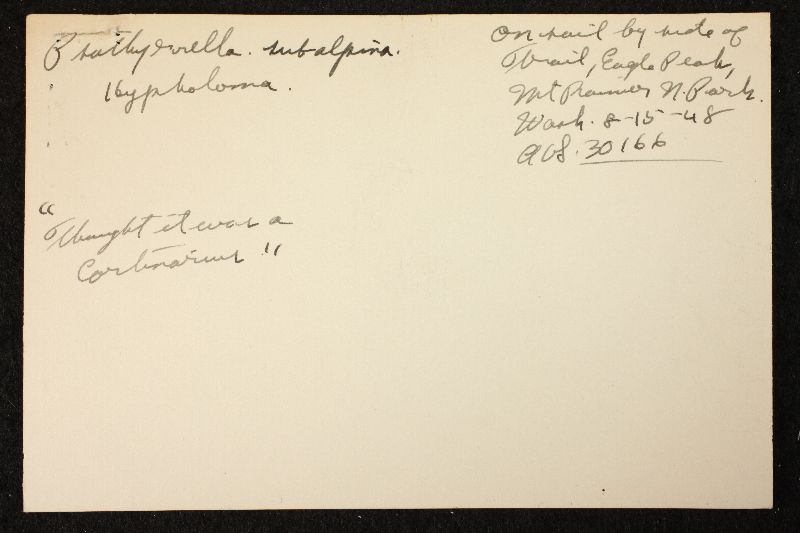 Psathyrella. subalpina.
Hypholoma.
On soil by side of
Trail, Eagle Peak,
Mt Rainier N. Park.
Wash. 8-15-48
AHS. 30166
"Thought it was a
Cortinarius"